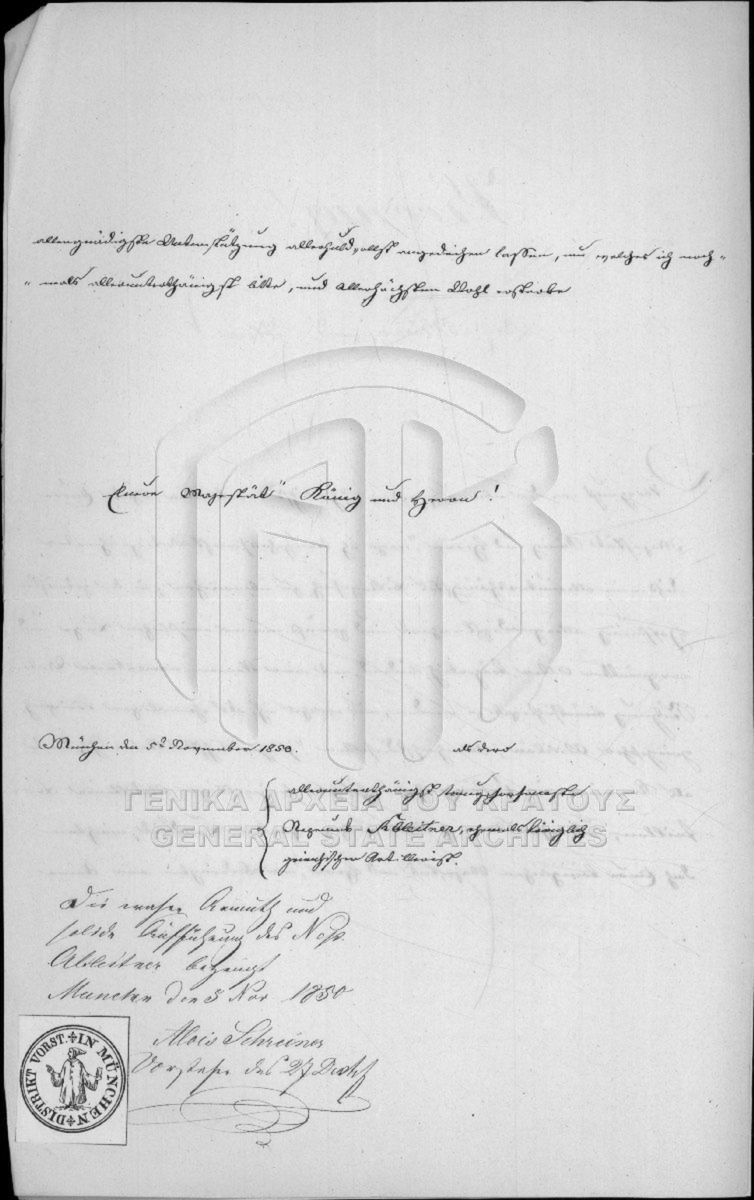 allergnädigste Unterstützung allerhuldvollst angedeihen lassen, um welches ich noch=
=mals allerunterthänigst bitte, und Allerhöchsten Wohl ersterbe
Euere Majestät König und Herrn!
München den 5t November 1850.
als dero
allerunterthänigst treugehorsamste
Abbleitner, ehemals königlich
griechischer Art
Die wahre Armuth und
solide Aufführung des
Ableitner bezeugt
München den 5 Nov 1850
Alois Schreiner
Vorsteher des 27 Distkt
DISTRIKT VORST. IN MÜNCHEN
ΓΕΝΙΚΑ ΑΡΧΕΙΑ ΤΟΥ ΚΡΑΤΟΥΣ
GENERAL STATE ARCHIVES